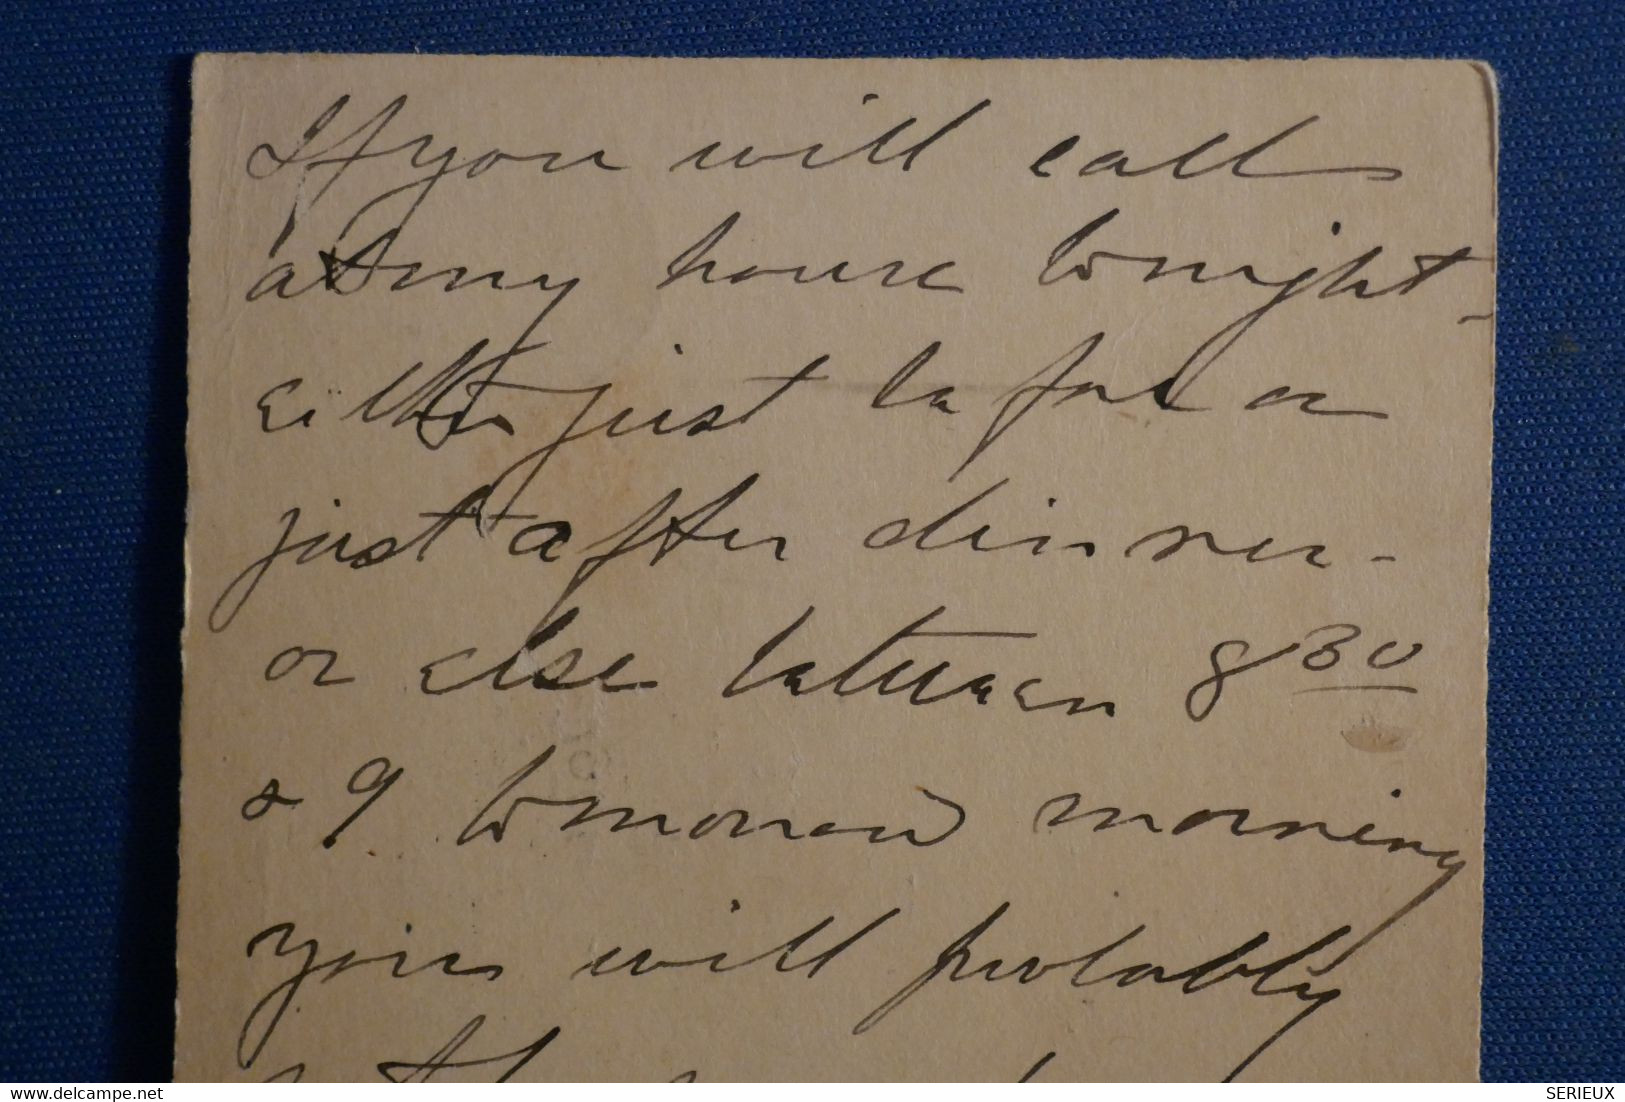 If you will call
at my house tonight -
either just before or
just after dinner -
or else between 8 30
& 9 tomorrow morning
you will probably
delcampe.net
SERIEUX